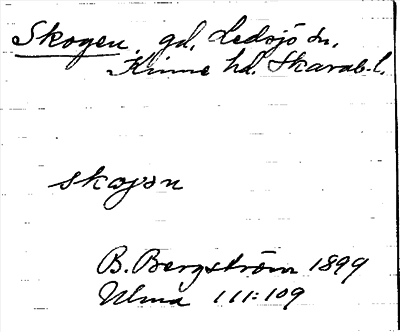 Skogen, gd, Ledsjö sn,
Kinne hd. Skarab.l.
skogən
B. Bergström 1899
Ulma 111:109